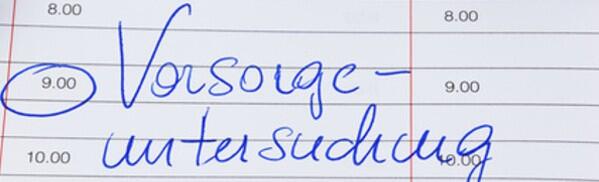 8.00 8.00
9.00 Vorsorge- 9.00
10.00 untersuchung 10.00